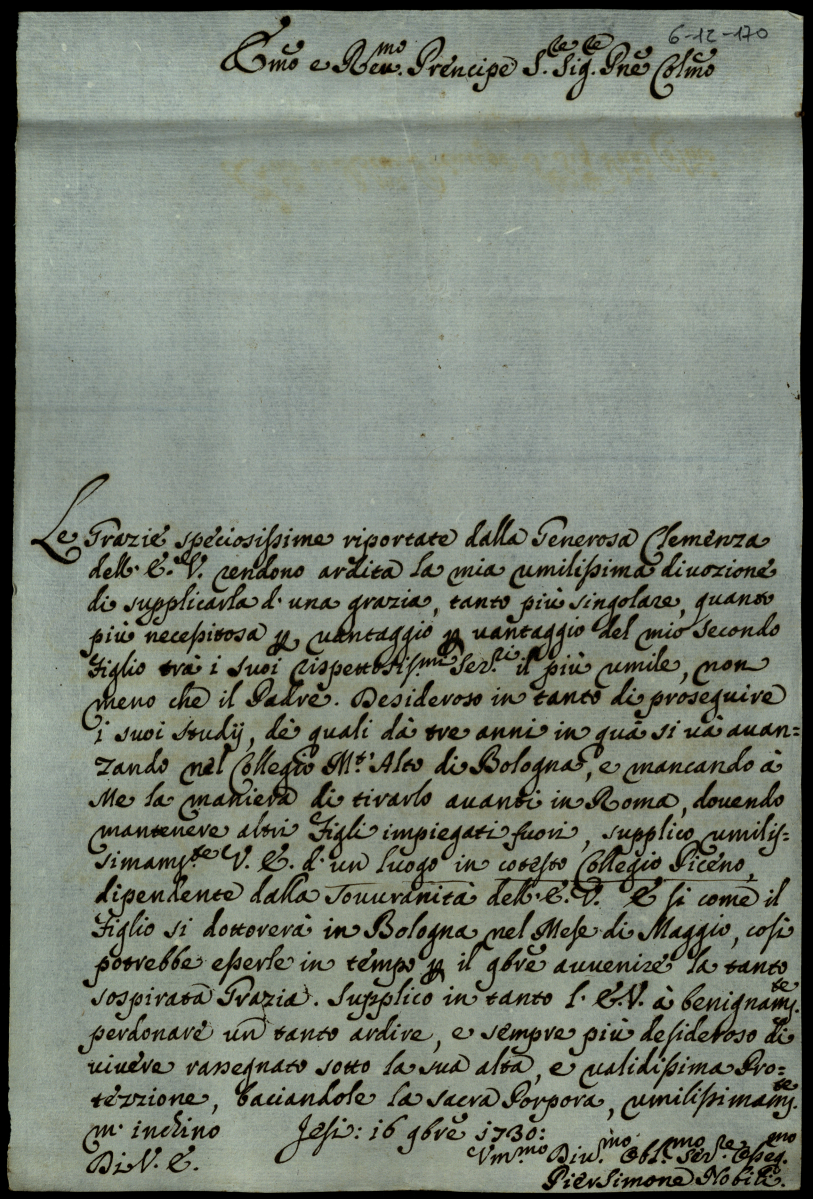 6-12-170
Em̃o e Reu.mo Prencipe S.te Sig.te Pne Colmo
Le Grazie speciosissime riportate dalla Generosa Clemenza
dell' E. V. rendono ardita la mia umilissima divozione
di supplicarla d' una grazia, tanto più singolare, quanto
più necessitosa p vantaggio p vantaggio del mio secondo
Figlio trà i suoi rispettosiss.mi Ser.ri il più umile, non
meno che il Padre. Desideroso in tanto di proseguire
i suoi study, de quali dà tre anni in quà si và auan=
zando nel Collegio Mt' Alto di Bologna, e mancando à
Me la maniera di tirarlo auanti in Roma, douendo
mantenere altri Figli impiegati fuori, supplico umilis=
simam.te V. E. d' un luogo in cotesto Collegio Piceno,
dipendente dalla Souuranità dell' E. V. E si come il
Figlio si dottorerà in Bologna nel Mese di Maggio, così
potrebbe esserle in tempo p il 9bre auuenire la tanto
sospirata Grazia. Supplico in tanto l' E.V. à benignam.te
perdonare un tanto ardire, e sempre più desideroso di
viuere rassegnato sotto la sua alta, e validissima Pro=
tezzione, baciandole la sacra Porpora, umilissimam.te
m' inchino Jesi: 16 9bre 1730:
Di V. E. Vm.mo Diu.mo Obl.mo Ser.re Osseq.mo
PierSimone Nobili.